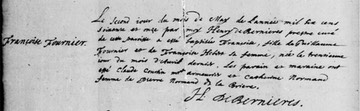 Le second jour du mois de May de l'année mil six cens
soixante et onze par moy Henry de Bernieres prestre curé
de cette paroisse a esté baptisée Françoise, fille de Guillaume
Françoise Fournier.
Fournier et de Françoise Hebert sa femme, née le
jour du mois d'Avril dernier. Les parain et maraine ont
esté Claude armeurier et Catherine Normand
femme de Pierre Normand de la Briere.
H. de Bernieres.